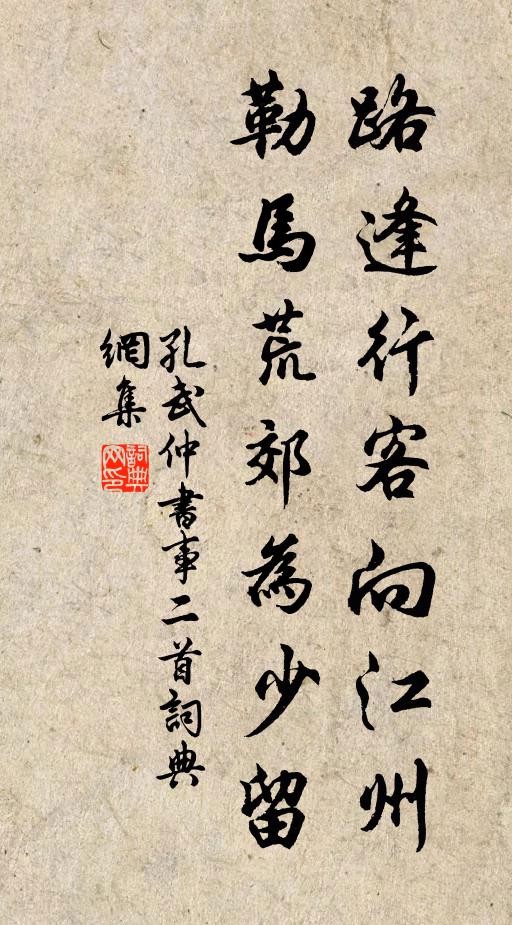 路逢行客向江州
勒馬荒郊為少留
孔武仲書事二首詞典
網集
詞典网印